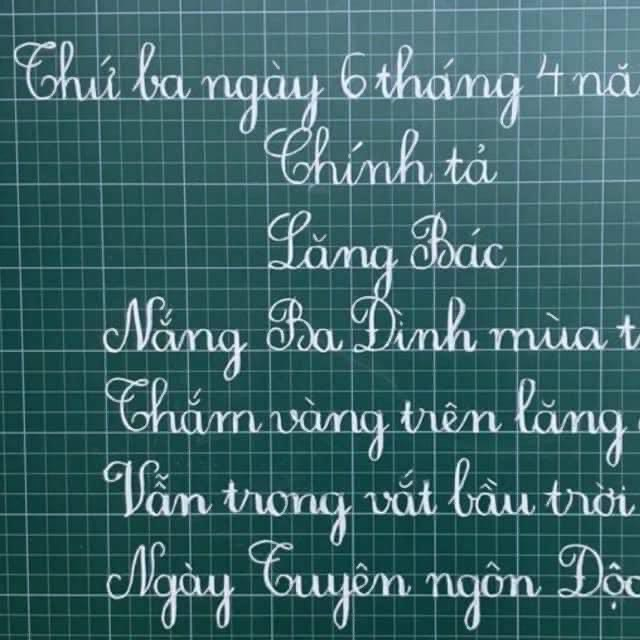 Thứ ba ngày 6 tháng 4 nă
Chính tả
Lăng Bác
Nắng Ba Đình mùa t
Thắm vàng trên lăng
Vẫn trong vắt bầu trời
Ngày Tuyên ngôn Độc